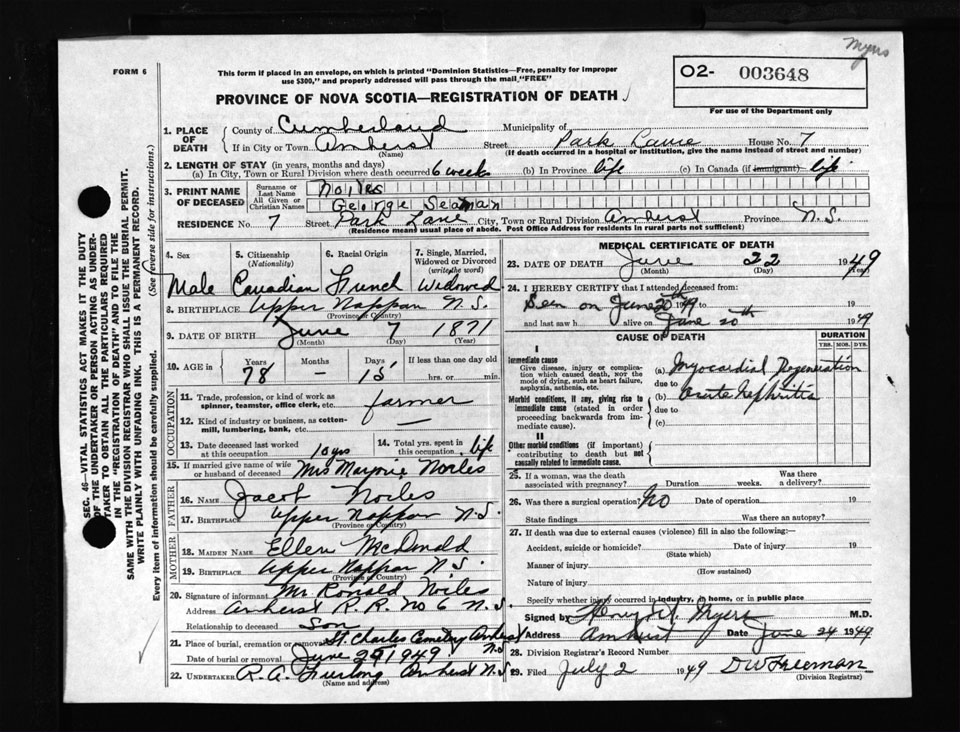 Myers
FORM 6
This form if placed in an envelope, on which is printed "Dominion Statistics—Free, penalty for improper
use $300," and properly addressed will pass through the mail, "FREE"
O2- 003648
For use of the Department only
PROVINCE OF NOVA SCOTIA—REGISTRATION OF DEATH
1. PLACE OF DEATH
County of Cumberland Municipality of
If in City or Town Amherst Street Park Lane House No. 7
(Name) (If death occurred in a hospital or institution, give the name instead of street and number)
2. LENGTH OF STAY (in years, months and days)
(a) In City, Town or Rural Division where death occurred 6 weeks (b) In Province life (c) In Canada (if immigrant) life
3. PRINT NAME OF DECEASED
Surname or Last Name Noiles
All Given or Christian Names George Seaman
RESIDENCE No. 7 Street Park Lane City, Town or Rural Division Amherst Province N.S.
(Residence means usual place of abode. Post Office Address for residents in rural parts not sufficient)
4. Sex 5. Citizenship (Nationality) 6. Racial Origin 7. Single, Married, Widowed or Divorced (write the word)
Male Canadian French Widowed
8. BIRTHPLACE Upper Nappan N.S.
(Province or Country)
9. DATE OF BIRTH June 7 1871
(Month) (Day) (Year)
10. AGE in Years Months Days If less than one day old
78 — 15 hrs. or min.
OCCUPATION
11. Trade, profession, or kind of work as spinner, teamster, office clerk, etc. farmer
12. Kind of industry or business, as cotten-mill, lumbering, bank, etc. —
13. Date deceased last worked at this occupation 10 yrs 14. Total yrs. spent in this occupation life
15. If married give name of wife or husband of deceased Mrs Marjorie Noiles
FATHER
16. NAME Jacob Noiles
17. BIRTHPLACE Upper Nappan N.S.
(Province or Country)
MOTHER
18. MAIDEN NAME Ellen McDonald
19. BIRTHPLACE Upper Nappan N.S.
(Province or Country)
20. Signature of informant Mr. Ronald Noiles
Address Amherst R.R. No 6 N.S.
Relationship to deceased Son
21. Place of burial, cremation or removal St. Charles Cemetery Amherst
Date of burial or removal June 25 1949
22. UNDERTAKER R.A. Furlong Amherst N.S.
(Name and address)
MEDICAL CERTIFICATE OF DEATH
23. DATE OF DEATH June 22 1949
(Month) (Day) (Year)
24. I HEREBY CERTIFY that I attended deceased from:
Seen on June 20th 1949 19
and last saw h alive on June 20th 1949
CAUSE OF DEATH
DURATION
YRS. MOS. DYS.
I
Immediate cause
Give disease, injury or complication which caused death, not the mode of dying, such as heart failure, asphyxia, asthenia, etc.
(a) Myocardial Degeneration
due to
Morbid conditions, if any, giving rise to immediate cause (stated in order proceeding backwards from immediate cause).
(b) Acute Nephritis
due to
(c)
II
Other morbid conditions (if important) contributing to death but not causally related to immediate cause.
25. If a woman, was the death associated with pregnancy? Duration weeks Was there a delivery?
26. Was there a surgical operation? No Date of operation 19
State findings Was there an autopsy?
27. If death was due to external causes (violence) fill in also the following:
Accident, suicide or homicide? Date of injury 19
(State which)
Manner of injury
(How sustained)
Nature of injury
Specify whether injury occurred in industry, in home, or in public place
Signed by Myers M.D.
Address Amherst Date June 24 1949
28. Division Registrar's Record Number
29. Filed July 2 1949 D W Freeman
(Division Registrar)
SEC. 46—VITAL STATISTICS ACT MAKES IT THE DUTY
OF THE UNDERTAKER OR PERSON ACTING AS UNDER-
TAKER TO OBTAIN ALL THE PARTICULARS REQUIRED
IN THE "REGISTRATION OF DEATH" AND TO FILE THE
SAME WITH THE DIVISION REGISTRAR WHO SHALL ISSUE THE BURIAL PERMIT.
WRITE PLAINLY WITH UNFADING INK. THIS IS A PERMANENT RECORD.
Every item of information should be carefully supplied. (See reverse side for instructions.)